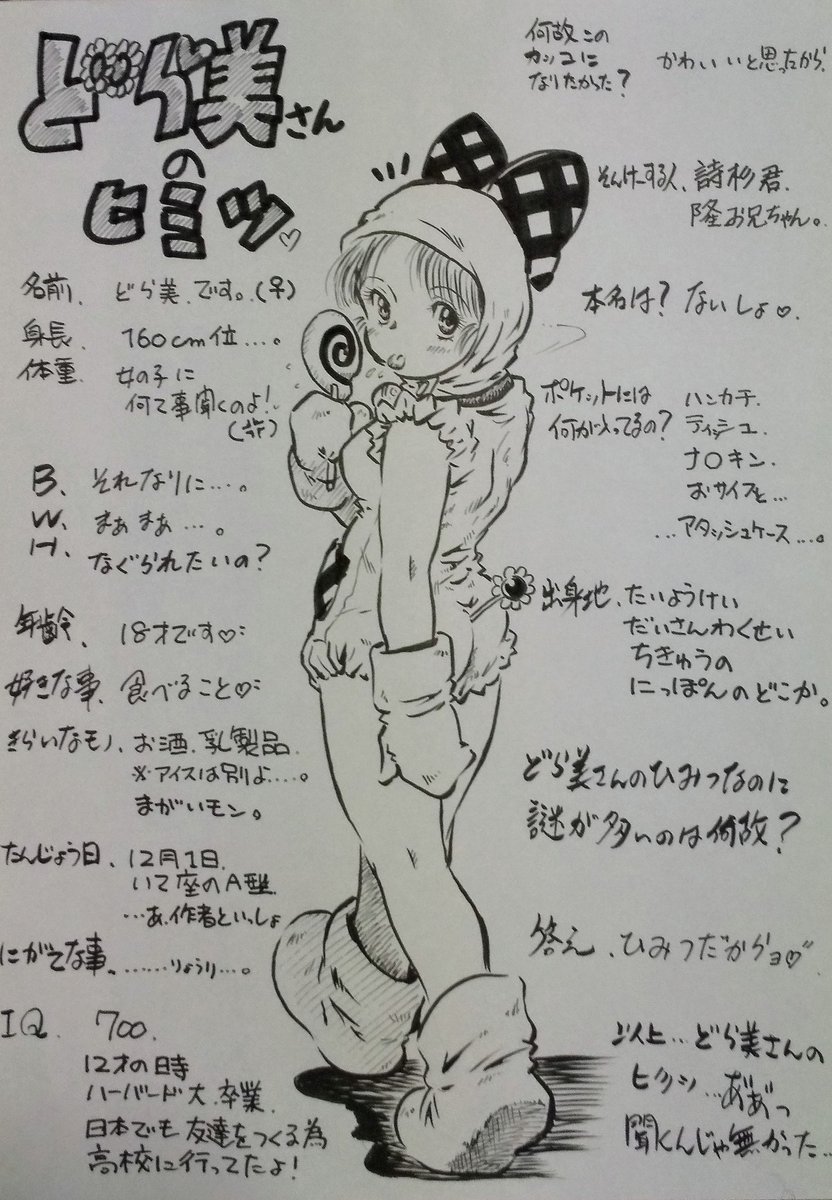 どら美さん
の
ヒミツ♡
名前、どら美です。(早)
身長、160cm位…。
体重、女の子に
何て事聞くのよ!
B、それなりに…。
W、まぁまぁ…。
H、なぐられたいの?
年齢、18才です♡
好きな事、食べること♡
きらいなモノ、お酒、乳製品
※アイスは別よ…。
まがいモン。
たんじょう日、12月1日
いて座のA型
…あ、作者といっしょ
にがてな事、……りょうり…。
IQ 700.
12才の時
ハーバード大、卒業
日本でも友達をつくる為
高校に行ってたよ!
何故この
カッコに
なりたかった?
かわいいと思ったから
そんけーする人、詩杉君、
隆お兄ちゃん。
本名は? ないしょ♡
ポケットには
何が入ってるの?
ハンカチ
ティッシュ
ナ○キン
おサイフと…
…アタッシュケース…。
出身地、たいようけい
だいさんわくせい
ちきゅうの
にっぽんのどこか。
どら美さんのひみつなのに
謎が多いのは何故?
答え、ひみつだからョ♡
以上…どら美さんの
ヒミツ…あぁっ
聞くんじゃ無かった…